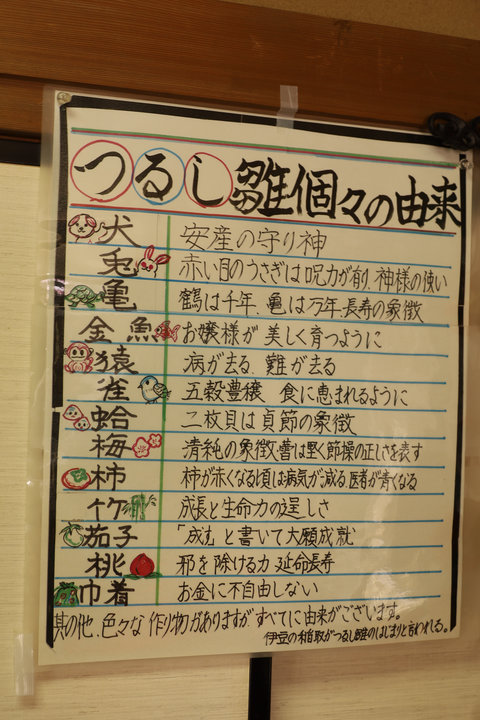 つるし雛個々の由来
犬 安産の守り神
兎 赤い目のうさぎは呪力が有り、神様の使い
亀 鶴は千年、亀は万年、長寿の象徴
金魚 お嬢様が美しく育つように
猿 病が去る、難が去る
雀 五穀豊穣 食に恵まれるように
蛤 二枚貝は貞節の象徴
梅 清純の象徴、蕾は堅く節操の正しさを表す
柿 柿が赤くなる頃は病気が減る、医者が青くなる
竹 成長と生命力の逞しさ
茄子 「成す」と書いて大願成就
桃 邪を除ける力 延命長寿
巾着 お金に不自由しない
其の他、色々な作り物がありますがすべてに由来がございます。
伊豆の稲取がつるし雛のはじまりと言われる。